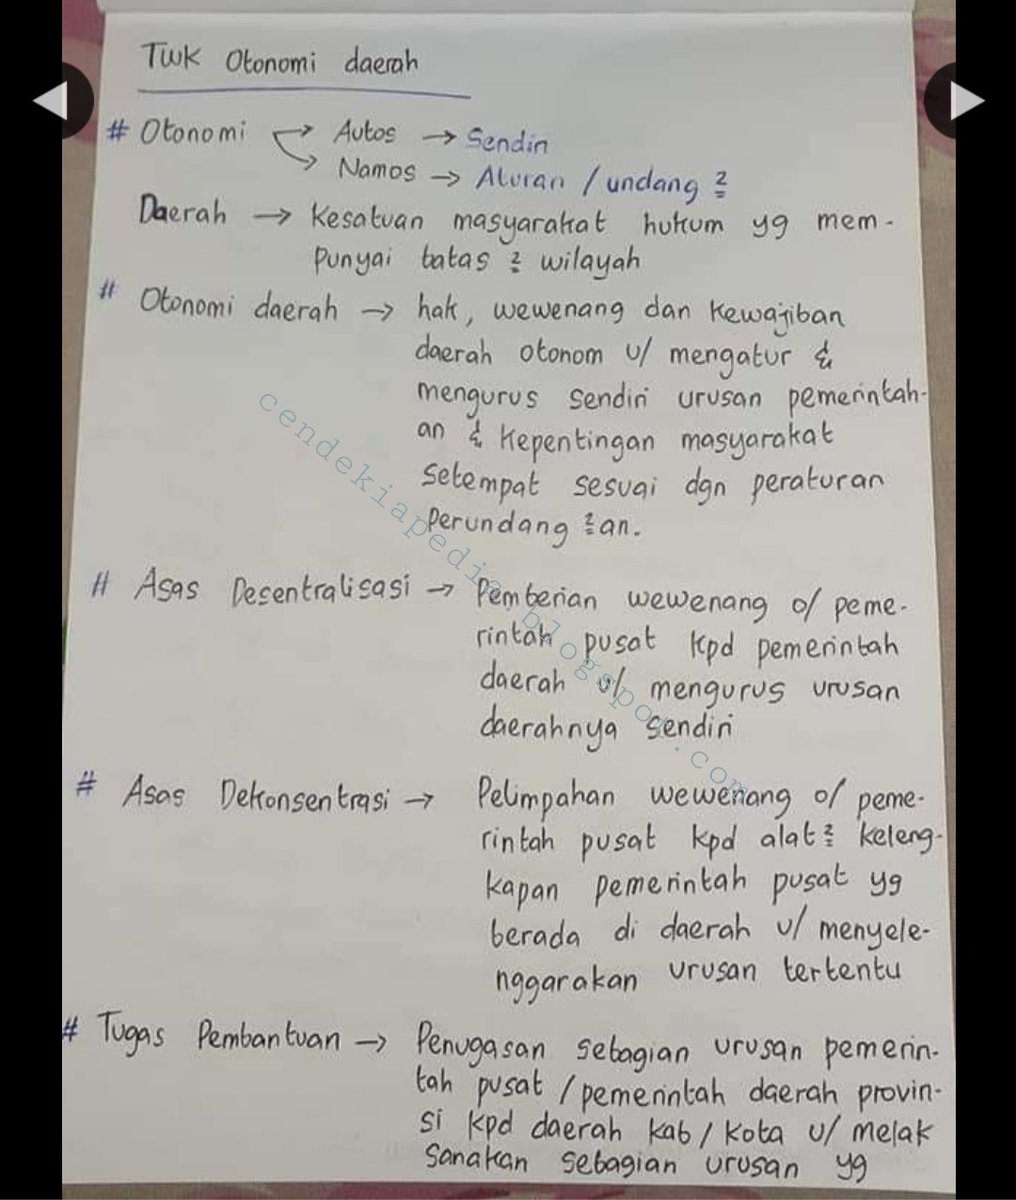 TWK Otonomi daerah
# Otonomi → Autos → Sendiri
→ Namos → Aturan / undang 2
Daerah → Kesatuan masyarakat hukum yg mem-
punyai batas 2 wilayah
# Otonomi daerah → hak, wewenang dan kewajiban
daerah otonom u/ mengatur &
mengurus sendiri urusan pemerintah-
an & kepentingan masyarakat
setempat sesuai dgn peraturan
perundang 2an.
# Asas Desentralisasi → Pemberian wewenang o/ peme-
rintah pusat kpd pemerintah
daerah u/ mengurus urusan
daerahnya sendiri
# Asas Dekonsentrasi → Pelimpahan wewenang o/ peme-
rintah pusat kpd alat 2 keleng-
kapan pemerintah pusat yg
berada di daerah u/ menyele-
nggarakan urusan tertentu
# Tugas Pembantuan → Penugasan sebagian urusan pemerin-
tah pusat / pemerintah daerah provin-
si kpd daerah kab / kota u/ melak
sanakan sebagian urusan yg
cendekiapedia.blogspot.com